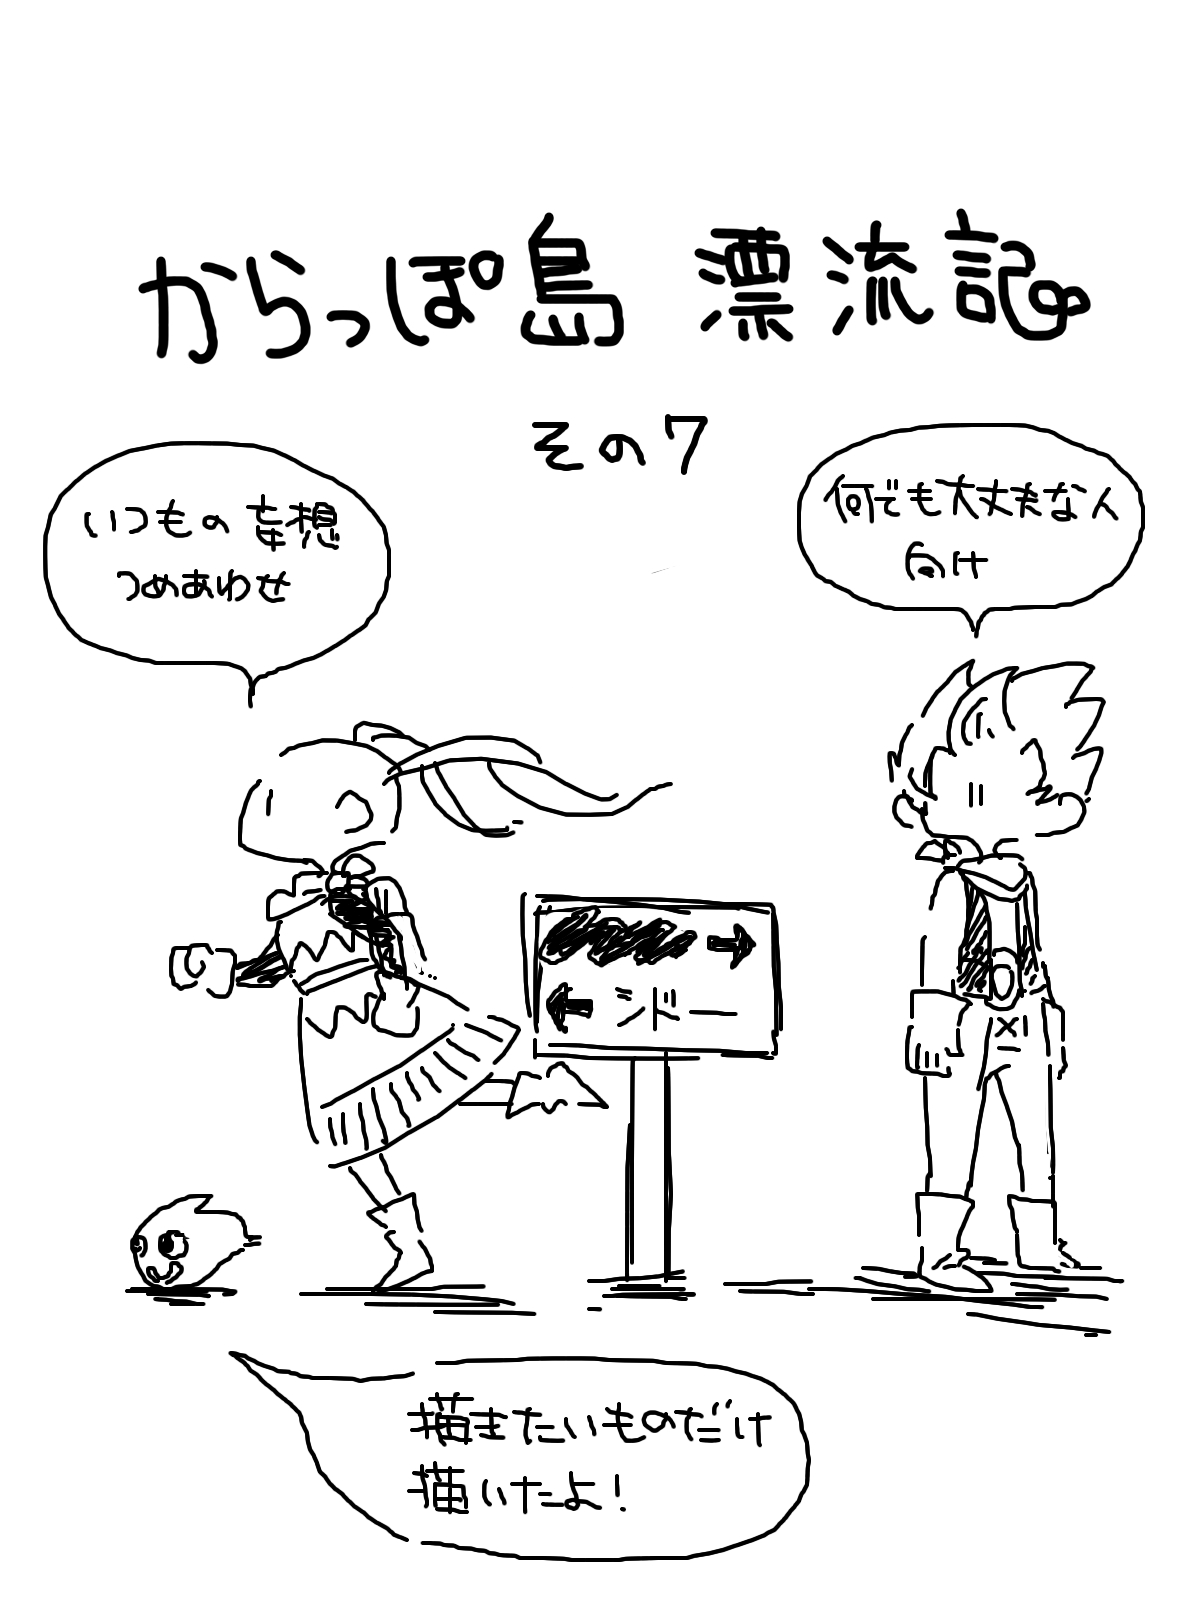 からっぽ島 漂流記
その7
いつもの妄想
つめあわせ
何でも大丈夫な人
向け
→
← シドー
描きたいものだけ
描いたよ!